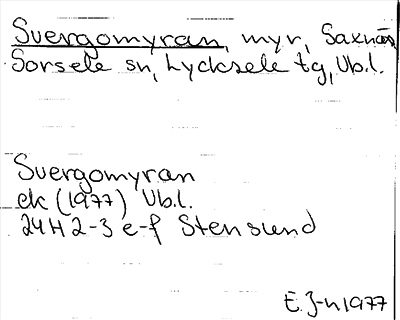 Svergomyran, myr, Saxnäs
Sorsele sn, Lycksele tg, Vb.l.
Svergomyran
ek (1977) Vb.l.
24H 2-3 e-f Stensund
E. J-n 1977